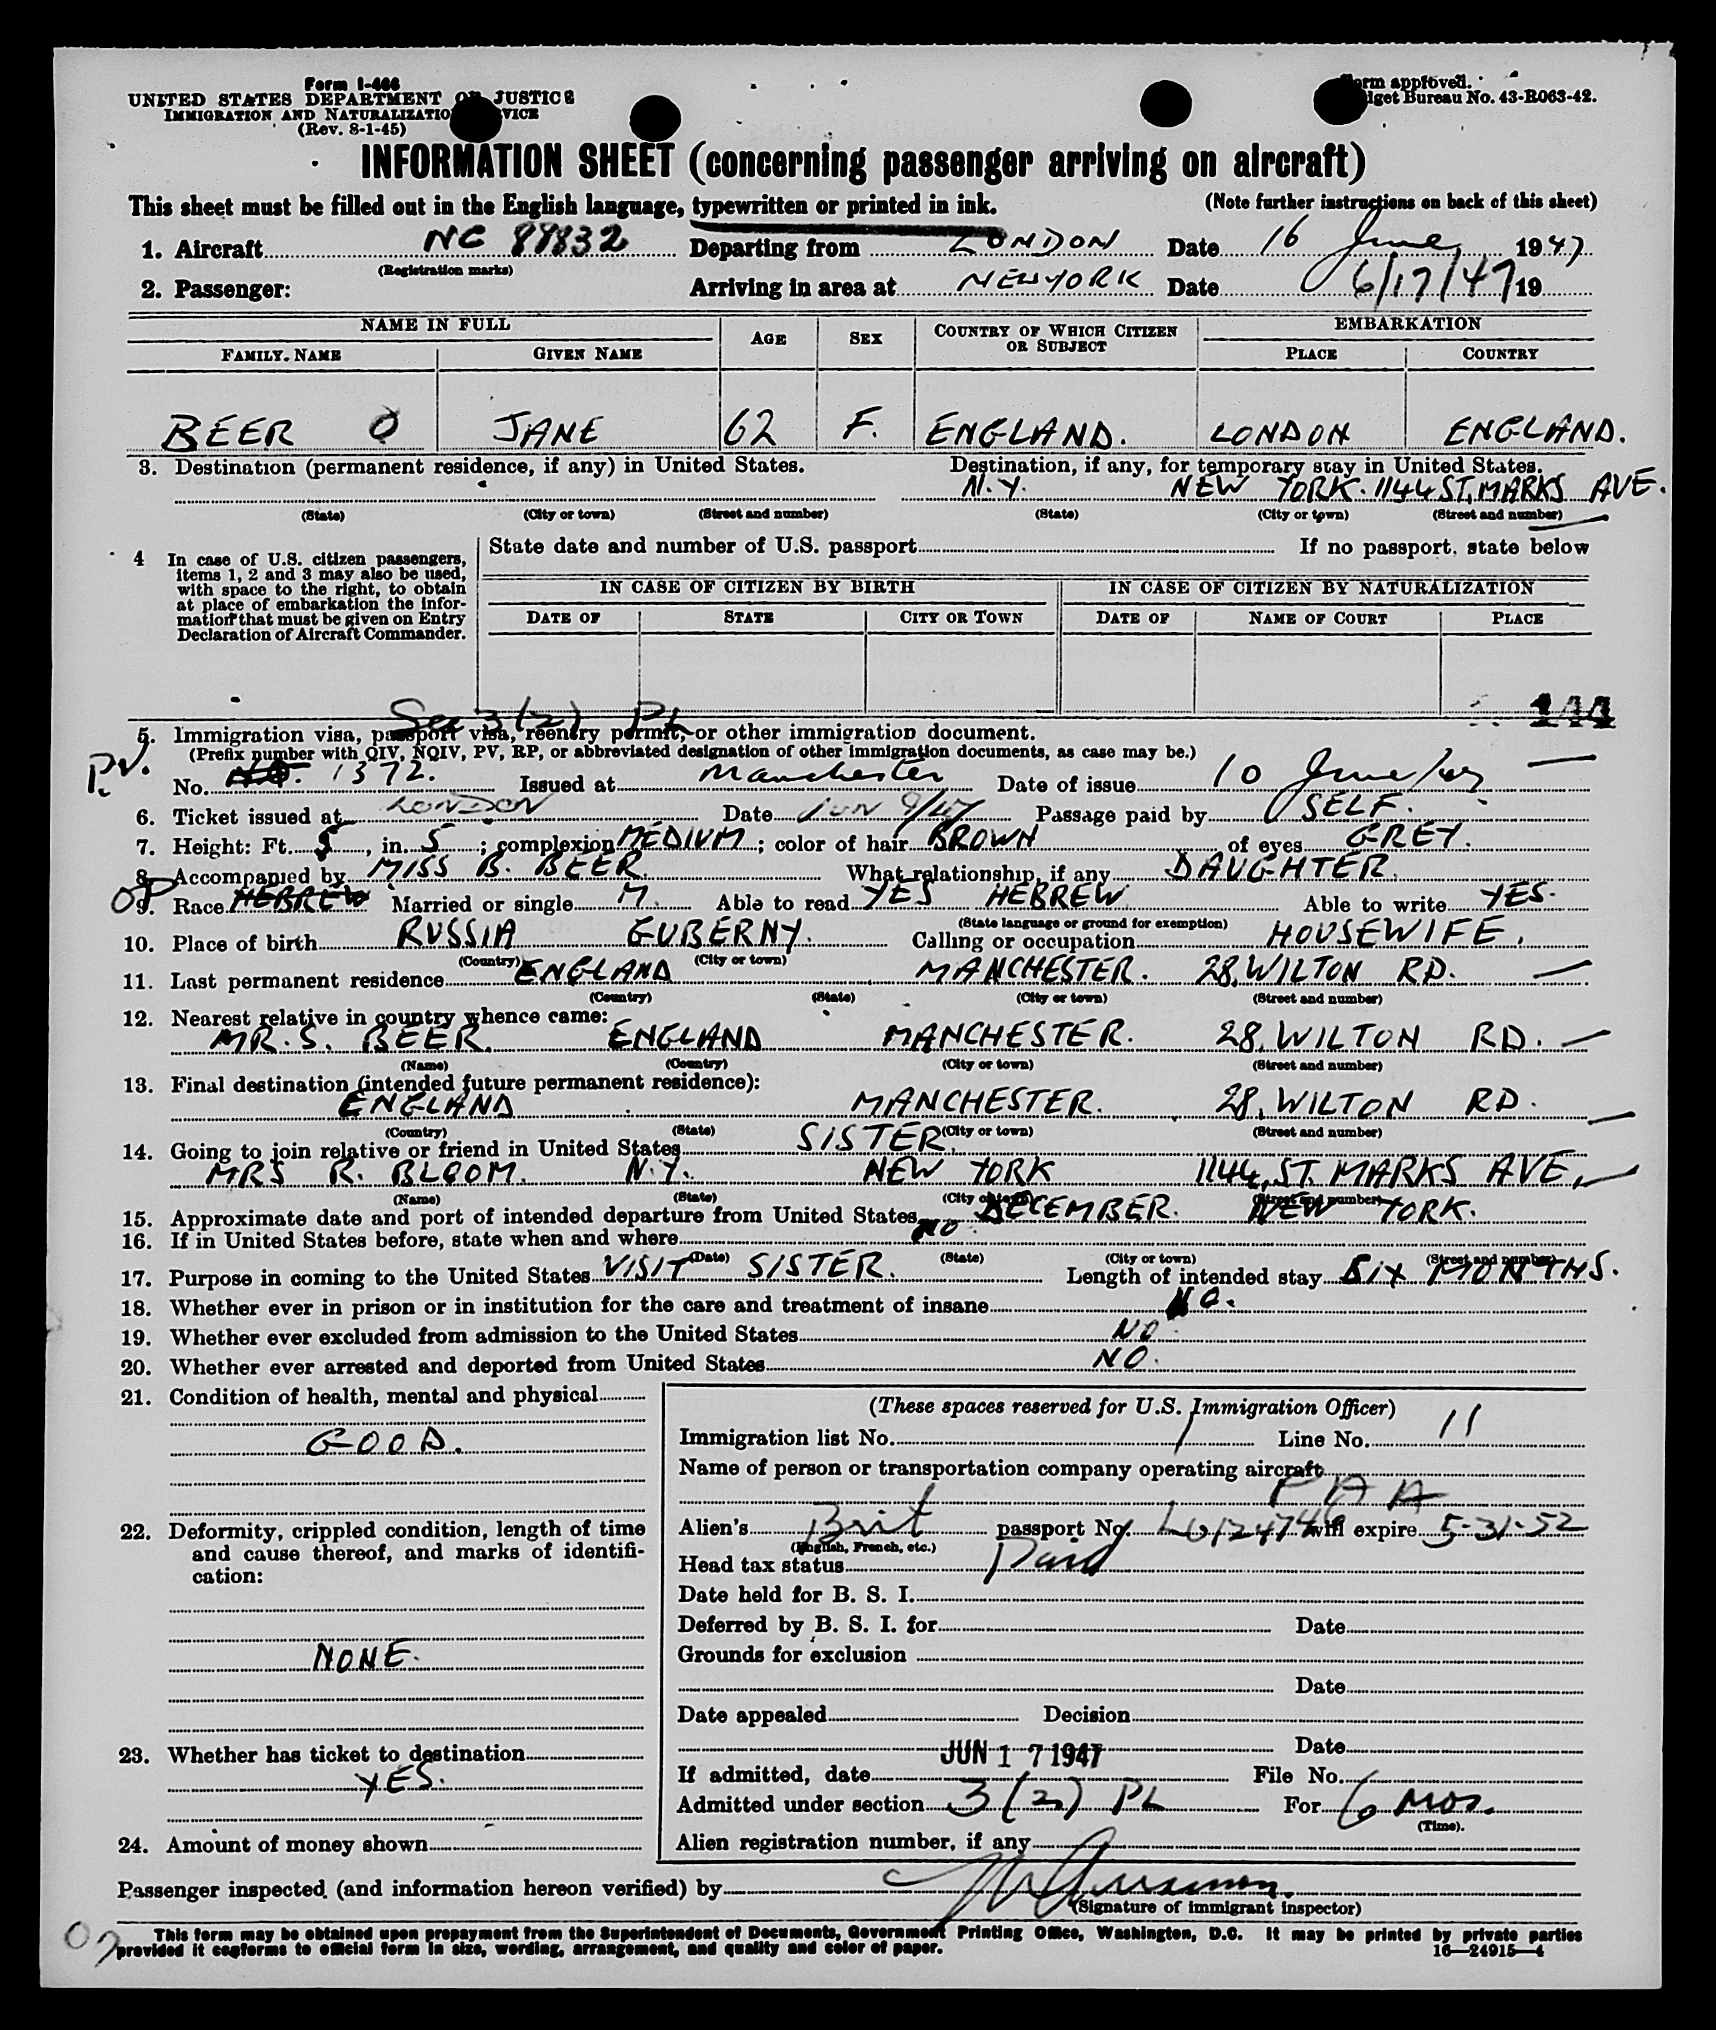 Form I-466
UNITED STATES DEPARTMENT OF JUSTICE
IMMIGRATION AND NATURALIZATION SERVICE
(Rev. 8-1-45)
Form approved.
Budget Bureau No. 43-R063-42.
INFORMATION SHEET (concerning passenger arriving on aircraft)
This sheet must be filled out in the English language, typewritten or printed in ink. (Note further instructions on back of this sheet)
1. Aircraft NC 88832 Departing from LONDON Date 16 June 1947
(Registration marks)
2. Passenger: Arriving in area at NEW YORK Date 6/17/47 19
NAME IN FULL AGE SEX COUNTRY OF WHICH CITIZEN OR SUBJECT EMBARKATION
FAMILY NAME GIVEN NAME PLACE COUNTRY
BEER JANE 62 F. ENGLAND. LONDON ENGLAND.
3. Destination (permanent residence, if any) in United States. Destination, if any, for temporary stay in United States.
N.Y. NEW YORK. 1144 ST. MARKS AVE.
(State) (City or town) (Street and number) (State) (City or town) (Street and number)
4 In case of U.S. citizen passengers, items 1, 2 and 3 may also be used, with space to the right, to obtain at place of embarkation the information that must be given on Entry Declaration of Aircraft Commander.
State date and number of U.S. passport If no passport, state below
IN CASE OF CITIZEN BY BIRTH IN CASE OF CITIZEN BY NATURALIZATION
DATE OF STATE CITY OR TOWN DATE OF NAME OF COURT PLACE
144
Sec 3(2) PL
5. Immigration visa, passport visa, reentry permit, or other immigration document.
(Prefix number with QIV, NQIV, PV, RP, or abbreviated designation of other immigration documents, as case may be.)
P.V. No. 1372. Issued at Manchester Date of issue 10 June/47
6. Ticket issued at LONDON Date JUN 9/47 Passage paid by SELF.
7. Height: Ft. 5, in. 5; complexion MEDIUM; color of hair BROWN of eyes GREY.
8. Accompanied by MISS B. BEER. What relationship, if any DAUGHTER.
9. Race HEBREW Married or single M. Able to read YES HEBREW Able to write YES.
(State language or ground for exemption)
10. Place of birth RUSSIA GUBERNY. Calling or occupation HOUSEWIFE.
(Country) (City or town)
11. Last permanent residence ENGLAND MANCHESTER. 28, WILTON RD.
(Country) (State) (City or town) (Street and number)
12. Nearest relative in country whence came:
MR. S. BEER. ENGLAND MANCHESTER. 28, WILTON RD.
(Name) (Country) (City or town) (Street and number)
13. Final destination (intended future permanent residence):
ENGLAND MANCHESTER. 28, WILTON RD.
(Country) (State) (City or town) (Street and number)
14. Going to join relative or friend in United States SISTER.
MRS R. BLOOM. N.Y. NEW YORK 1144, ST. MARKS AVE,
(Name) (State) (City or town) (Street and number)
15. Approximate date and port of intended departure from United States DECEMBER. NEW YORK.
16. If in United States before, state when and where NO.
(Date) (State) (City or town) (Street and number)
17. Purpose in coming to the United States VISIT SISTER. Length of intended stay SIX MONTHS.
18. Whether ever in prison or in institution for the care and treatment of insane NO.
19. Whether ever excluded from admission to the United States NO.
20. Whether ever arrested and deported from United States NO.
21. Condition of health, mental and physical
GOOD.
22. Deformity, crippled condition, length of time and cause thereof, and marks of identification:
NONE.
23. Whether has ticket to destination
YES.
24. Amount of money shown
(These spaces reserved for U.S. Immigration Officer)
Immigration list No. 1 Line No. 11
Name of person or transportation company operating aircraft
PAA
Alien's Brit passport No. L0124746 will expire 5-31-52
(English, French, etc.)
Head tax status Paid
Date held for B. S. I.
Deferred by B. S. I. for Date
Grounds for exclusion
Date
Date appealed Decision
Date
If admitted, date JUN 17 1947 File No.
Admitted under section 3(2) PL For 6 mos.
(Time).
Alien registration number, if any
Passenger inspected (and information hereon verified) by
(Signature of immigrant inspector)
This form may be obtained upon prepayment from the Superintendent of Documents, Government Printing Office, Washington, D.C. It may be printed by private parties
provided it conforms to official form in size, wording, arrangement, and quality and color of paper. 16—24915—4